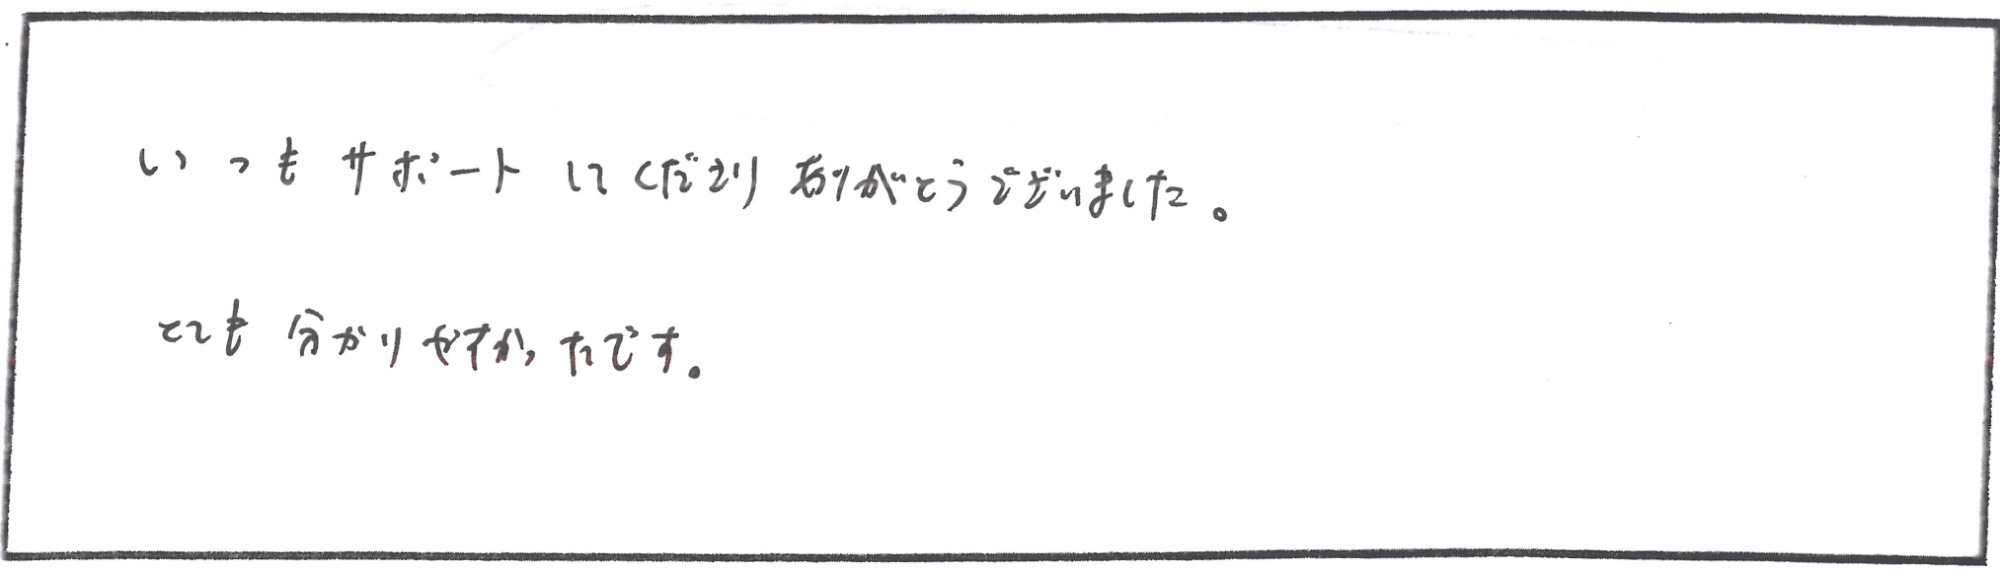 いつもサポートしてくださりありがとうございました。
とても分かりやすかったです。